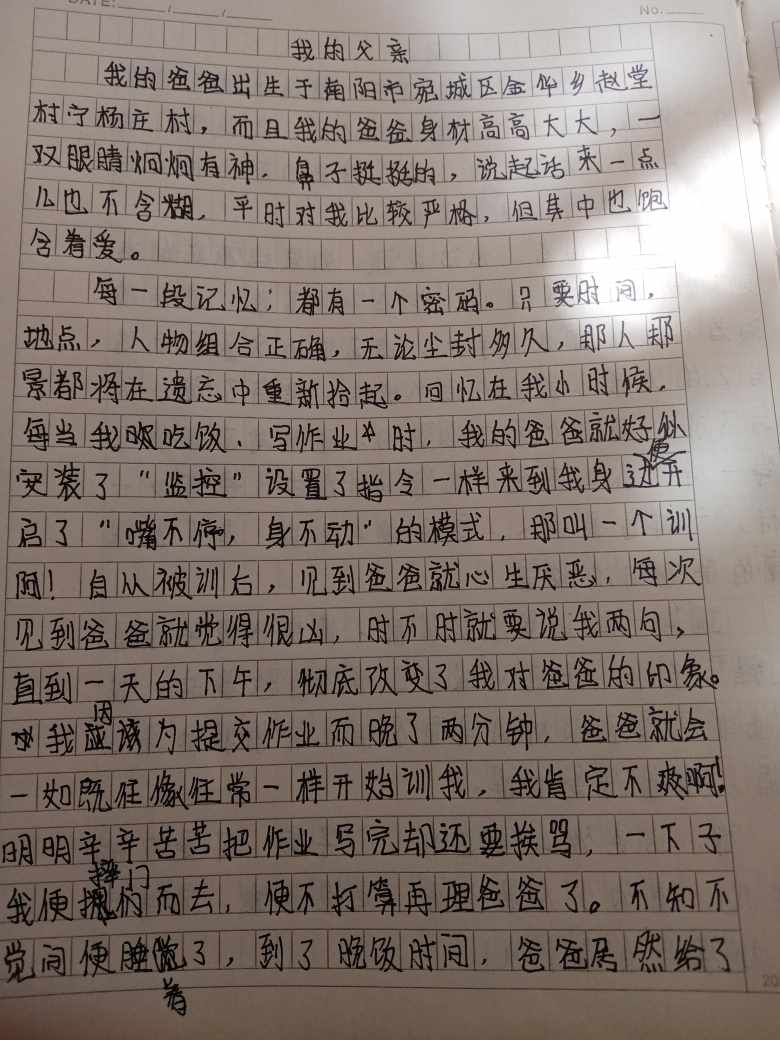 DATE: / /
No.
我的父亲
我的爸爸出生于南阳市宛城区金华乡赵堂
村宁杨庄村，而且我的爸爸身材高高大大，一
双眼睛炯炯有神，鼻子挺挺的，说起话来一点
儿也不含糊，平时对我比较严格，但其中也饱
含着爱。
每一段记忆；都有一个密码。只要时间，
地点，人物组合正确，无论尘封多久，那人那
景都将在遗忘中重新拾起。回忆在我小时候，
每当我吃饭、写作业时，我的爸爸就好似
安装了“监控”设置了指令一样来到我身边便开
启了“嘴不停，身不动”的模式，那叫一个训
啊！自从被训后，见到爸爸就心生厌恶，每次
见到爸爸就觉得很凶，时不时就要说我两句，
直到一天的下午，彻底改变了我对爸爸的印象。
我因为提交作业而晚了两分钟，爸爸就会
一如既往像往常一样开始训我，我肯定不爽啊！
明明辛辛苦苦把作业写完却还要挨骂，一下子
我便摔门而去，便不打算再理爸爸了。不知不
觉间便睡着了，到了晚饭时间，爸爸居然给了
20